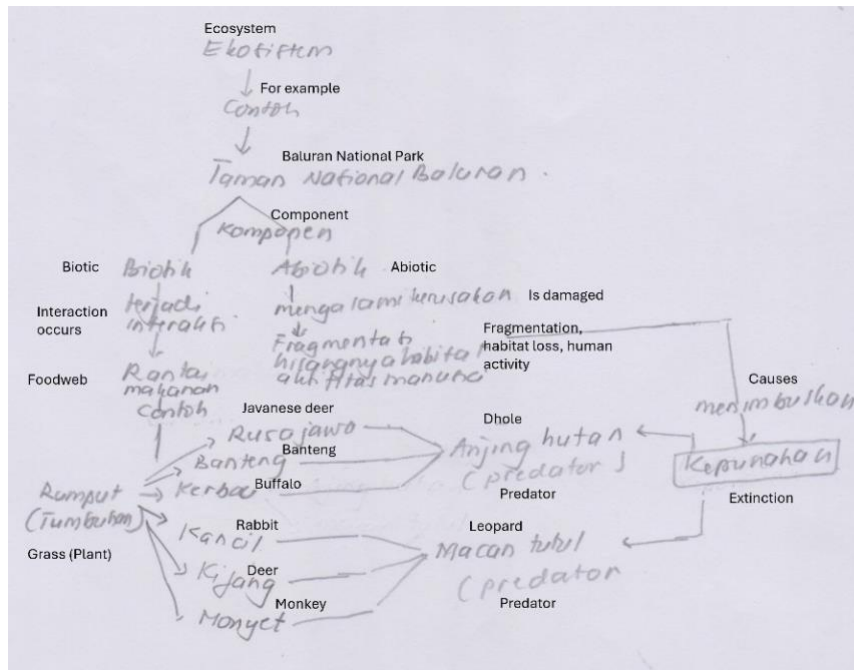 Ecosystem
Ekosistem
For example
Contoh
Baluran National Park
Taman National Baluran.
Component
Komponen
Biotic
Biotik
Abiotik
Abiotic
Interaction
occurs
terjadi
interaksi
mengalami kerusakan
Is damaged
Fragmentasi
hilangnya habitat
aktifitas manusia
Fragmentation,
habitat loss, human
activity
Foodweb
Rantai
makanan
Contoh
Causes
menimbulkan
Javanese deer
Rusa jawa
Banteng
Banteng
Buffalo
Kerbau
Dhole
Anjing hutan
(predator)
Predator
Kepunahan
Extinction
Rumput
(Tumbuhan)
Grass (Plant)
Rabbit
Kancil
Deer
Kijang
Monkey
Monyet
Leopard
Macan tutul
(predator
Predator